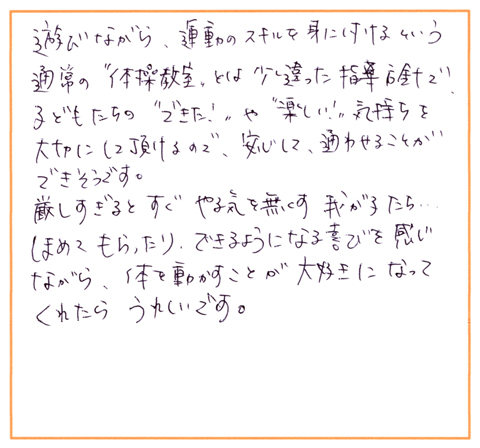 遊びながら、運動のスキルを身に付けるという
通常の"体操教室"とは少し違った指導方針で、
子どもたちの"できた!"や"楽しい!"気持ちを
大切にして頂けるので、安心して、通わせることが
できそうです。
厳しすぎるとすぐ やる気を無くす我が子たち…
ほめてもらったり、できるようになる喜びを感じ
ながら、体を動かすことが大好きになって
くれたら うれしいです。